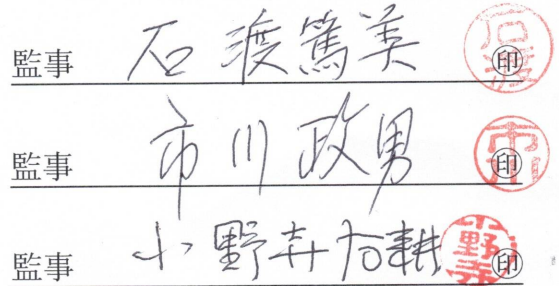 監事 石渡篤美 ㊞
監事 市川政男 ㊞
監事 小野寺右耕 ㊞